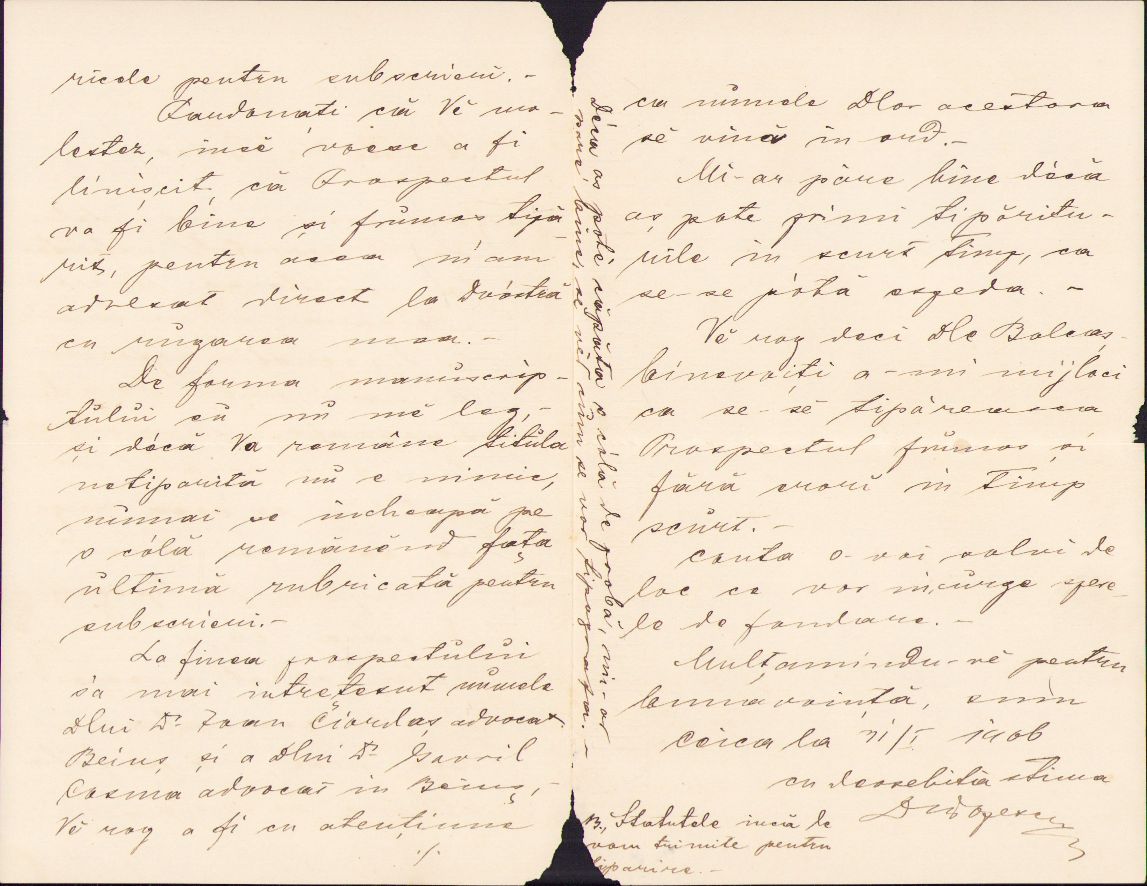 ricele pentru subscrieri.-
Pardonați că Vĕ mo-
lestez, insĕ voesc a fi
liniscit, că Prospectul
va fi bine și frumos tipă
rit, pentru aceea m'am
adresat direct la Dvóstră
cu rugarea mea.-
De forma manuscrip-
tului eu nu mĕ leg,-
și décă va românе titula
netiparită nu e nimic,
numai se incheapă pe
o cólă remânĕnd fața
ultimă rubricată pentru
subscrieri.-
La finea prospectului
s'a mai intrețesut numele
Dlui Dr Ioan Ciordaș advocat
Beiuș și a Dlui Dr Gavril
Cosma advocat in Beiuș,-
Vĕ rog a fi cu atențiune
./.
ca numele Dlor acestora
sĕ vină in ord.-
Mi-ar păre bine décă
aș pute primi tipăritu-
rile in scurt timp, ca
se-se pótă espeda.-
Vĕ rog deci Dle Balaș
binevoiți a-mi mijloci
ca se-sĕ tipărească
Prospectul frumos și
fără erori in timp
scurt.-
Conta o-voi solvi de
loc ce vor incurge spese-
le de fondare.-
Mulțamindu-vĕ pentru
bunavoință, sum
Ceica la 31/I 1906
cu deosebita stima
DWPopescu
B., Statutele incă le
vom trimite pentru
tiparire.-
Déca aș poté căpăta o cólă de probă, mi-ar
paré bine, se vĕd cum se vor tipografa.-